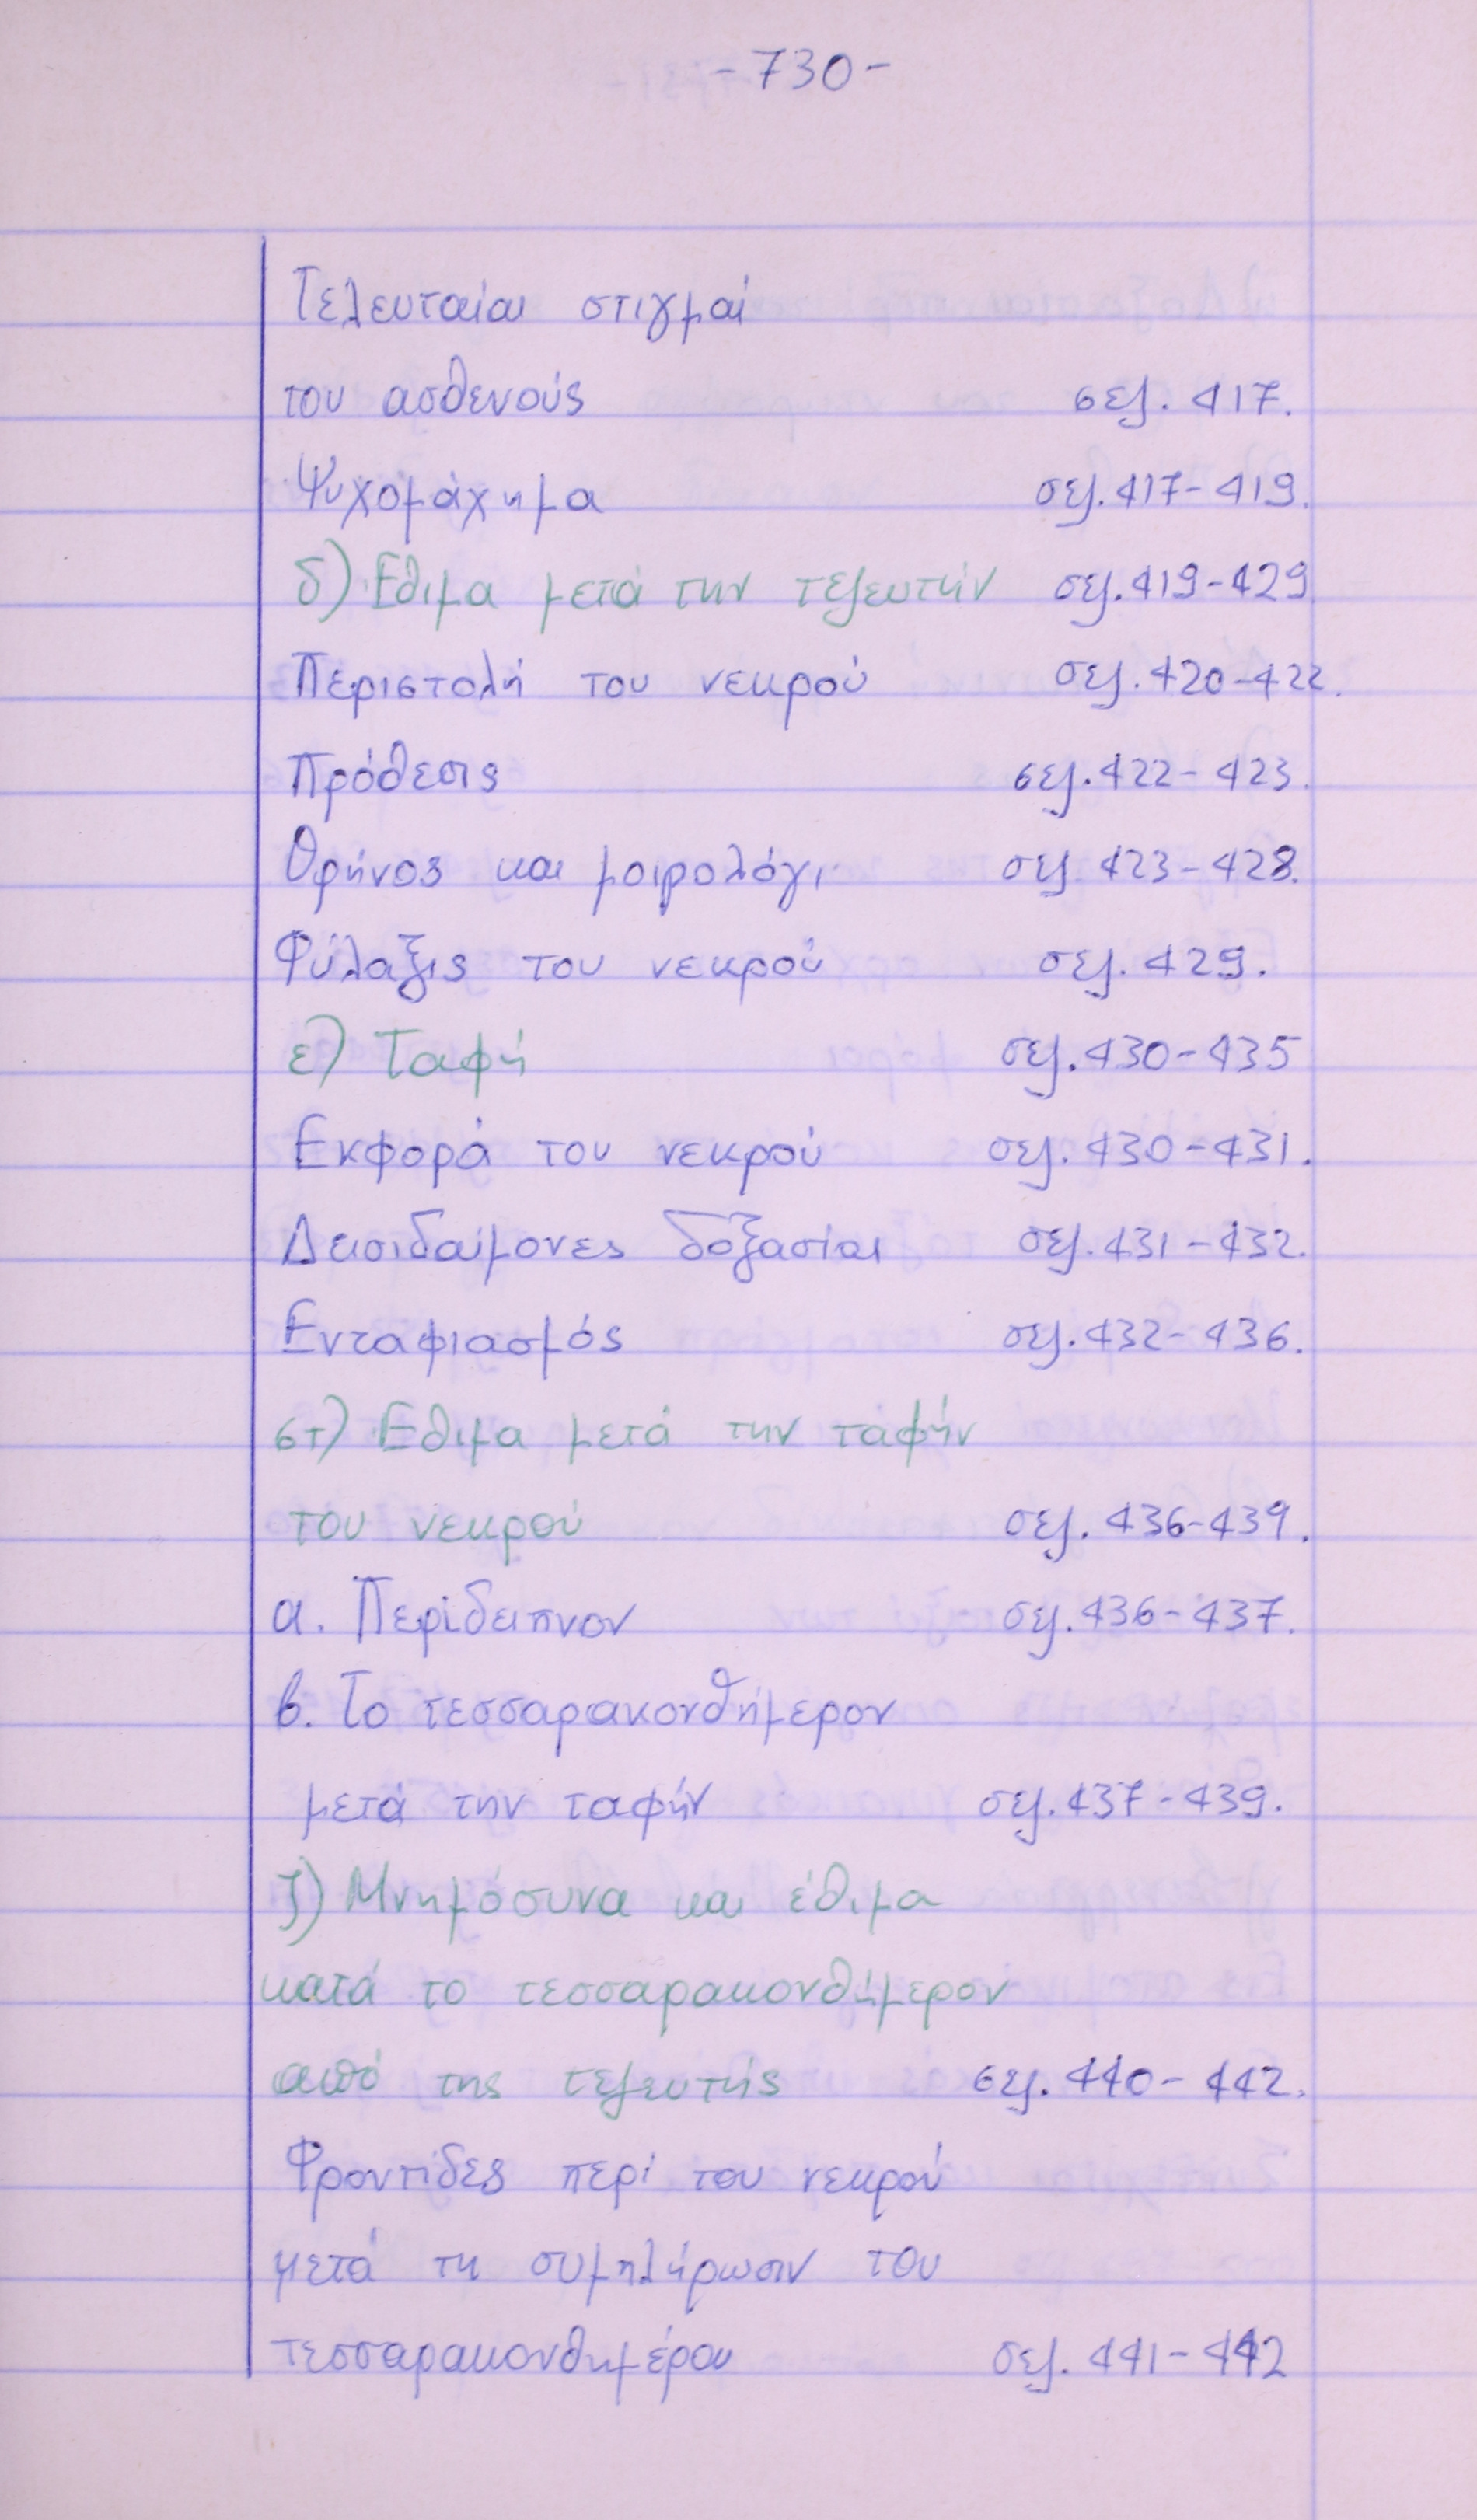 -730-
Τελευταίαι στιγμαί
του ασθενούς σελ. 417.
Ψυχομάχημα σελ. 417-419.
δ) Εθιμα μετά την τελευτήν σελ. 419-429
Περιστολή του νεκρού σελ. 420-422.
Πρόθεσις σελ. 422-423.
Θρήνος και μοιρολόγι σελ 423-428.
Φύλαξις του νεκρού σελ. 429.
ε) Ταφή σελ. 430-435
Εκφορά του νεκρού σελ. 430-431.
Δεισιδαίμονες δοξασίαι σελ. 431-432.
Ενταφιασμός σελ. 432-436.
στ) Εθιμα μετά την ταφήν
του νεκρού σελ. 436-439.
α. Περίδειπνον σελ. 436-437.
β. Το τεσσαρακονθήμερον
μετά την ταφήν σελ. 437-439.
ζ) Μνημόσυνα και έθιμα
κατά το τεσσαρακονθήμερον
από της τελευτής σελ. 440-442.
Φροντίδες περί του νεκρού
μετά τη συμπλήρωσιν του
τεσσαρακονθημέρου σελ. 441-442